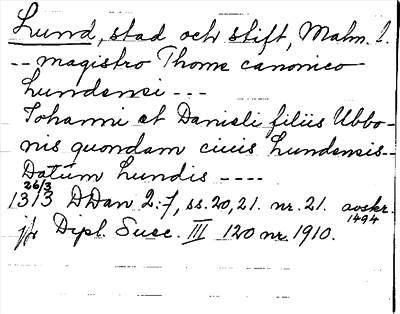 Lund, stad och stift, Malm. l.
-- magistro Thome canonico
Lundensi ---
Johanni et Danieli filiis Ubbo-
nis quondam ciuis Lundensis--
Datum Lundis ----
26/3
1313 DDan 2:7, ss. 20, 21. nr. 21. avskr. 1494
jfr Dipl. Suec. III 120 nr. 1910.